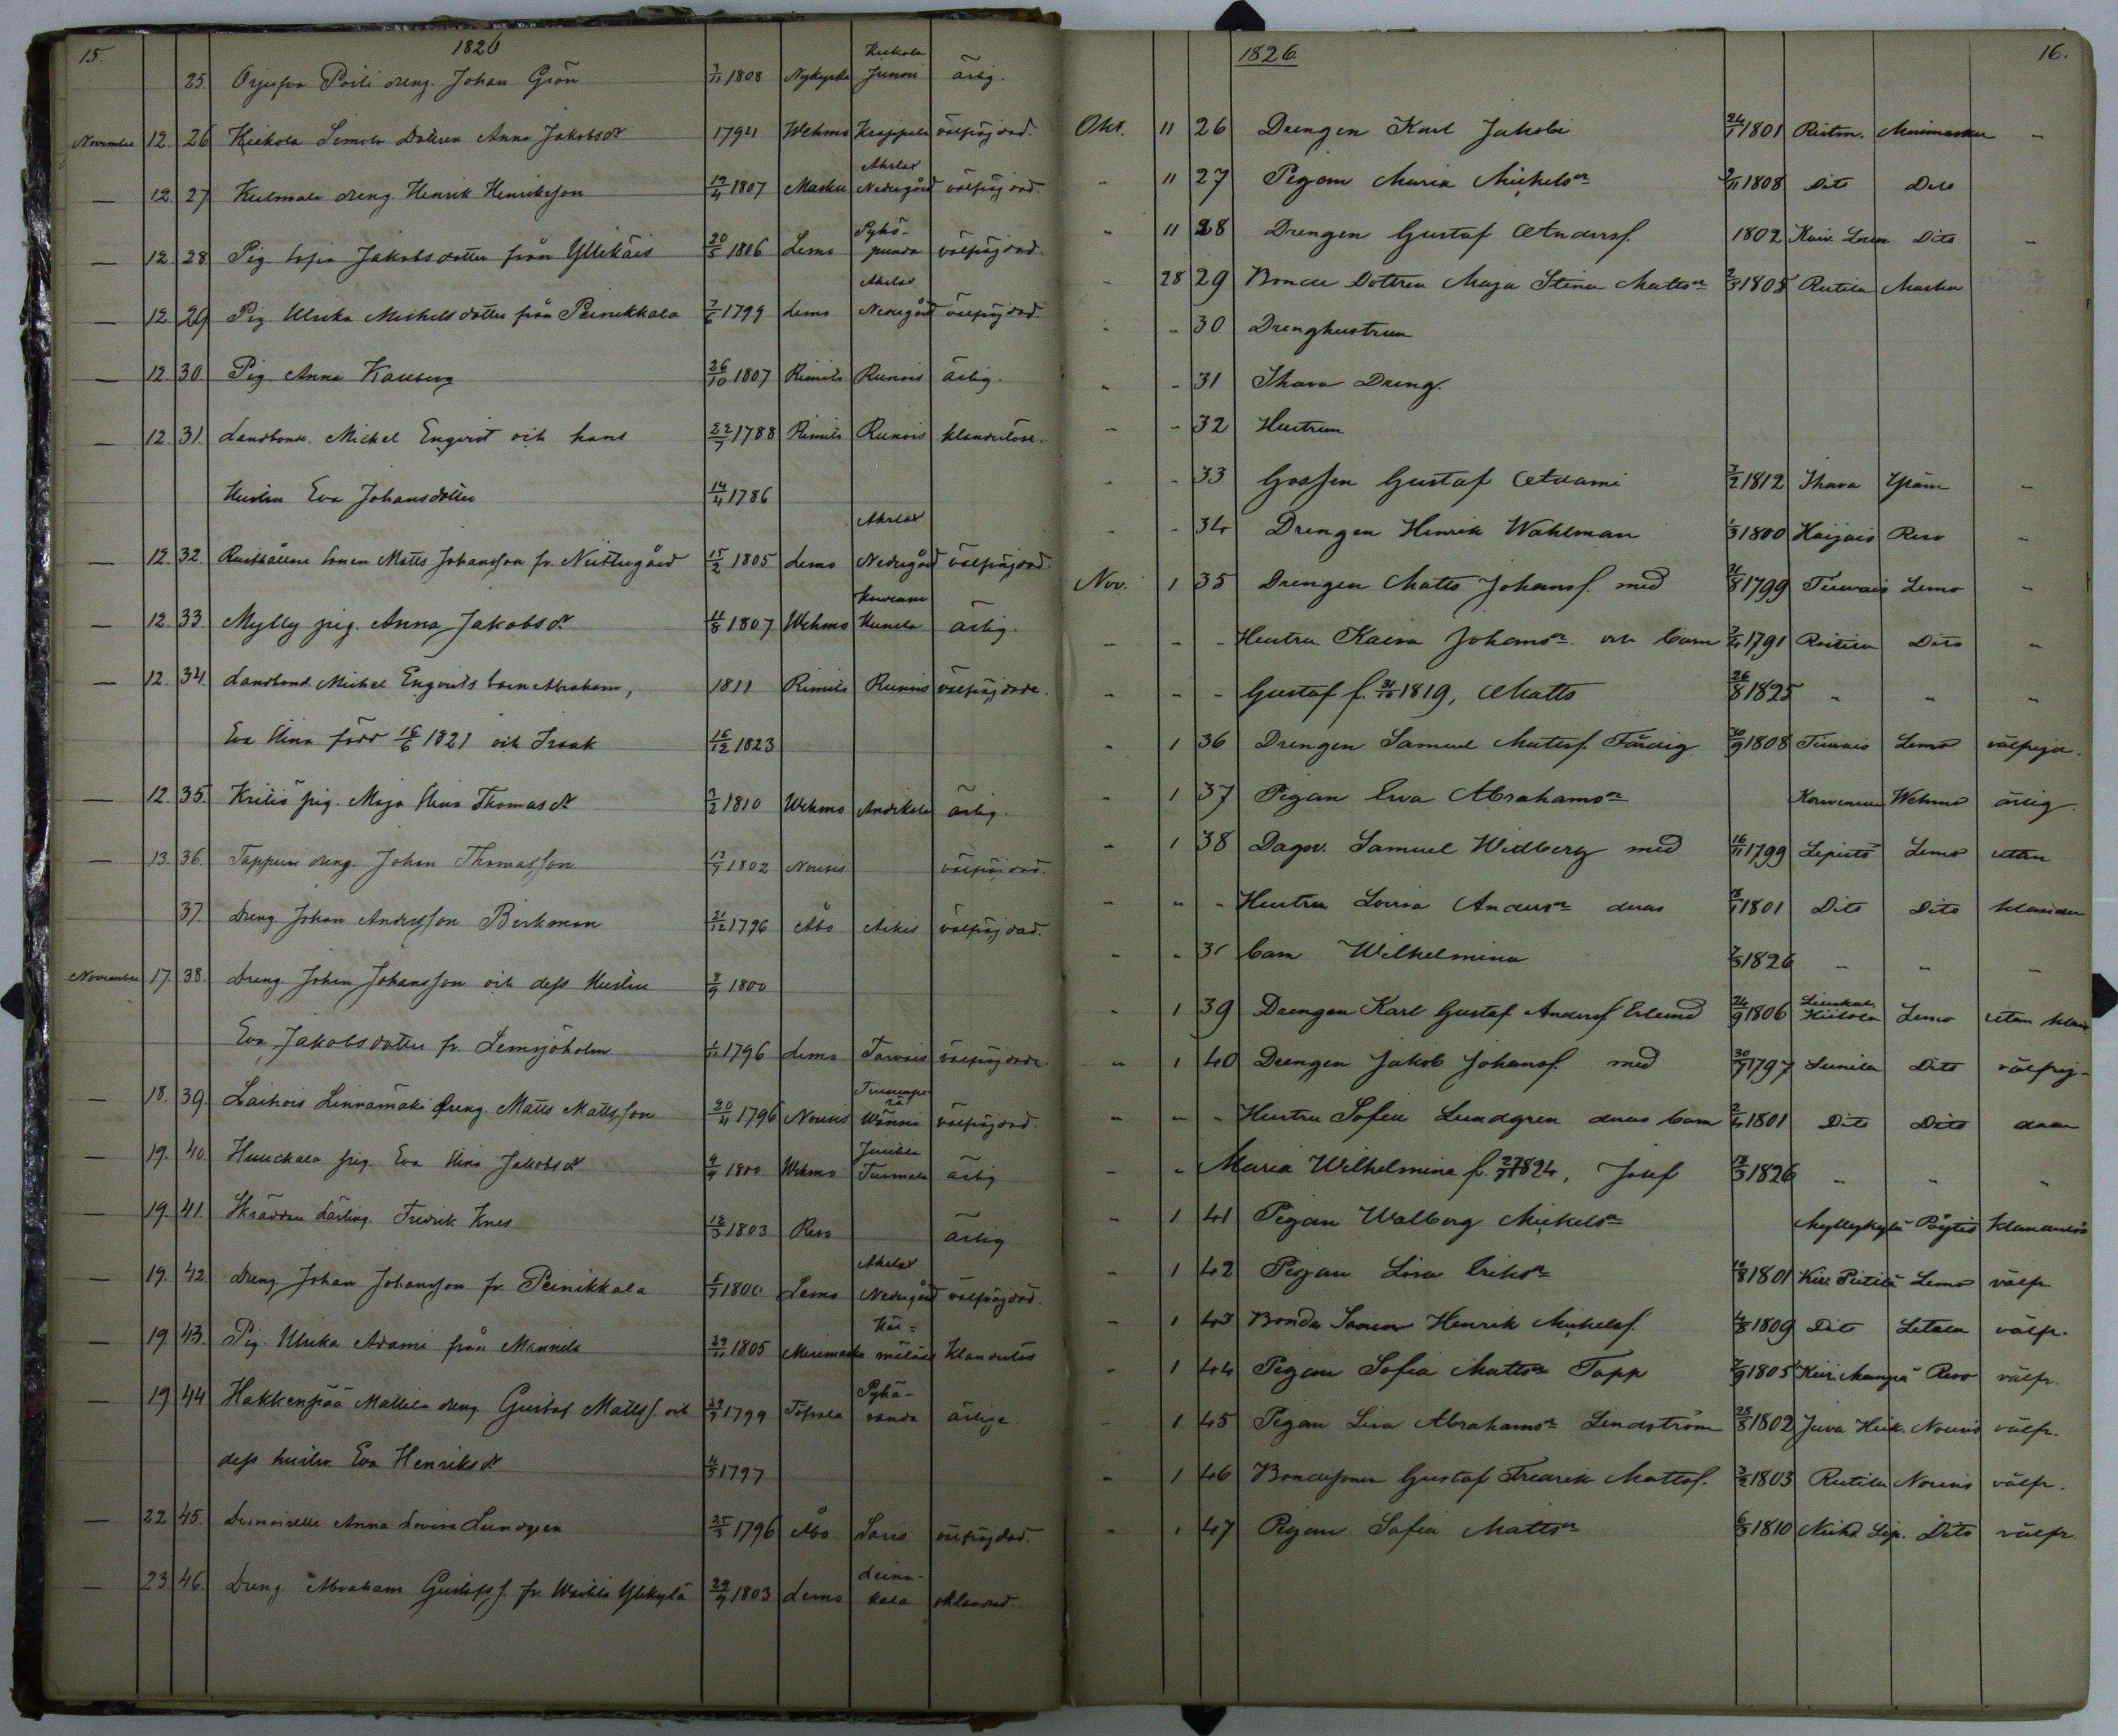 15.
1826
25. Poili dreng. Johan Grön 3/11 1808 Nykyrka Junni ärlig.
November 12. 26 Kiekola Simola Dottren Anna Jakobsdr 1794 Wehmo Krappala välfräjdad.
— 12. 27 Keilmala dreng. Henrik Henriksson 19/4 1807 Masku Ahrlax Nedregård välfräjdad.
— 12. 28 Pig. Sofia Jakobsdotter från Yllikäis 20/5 1806 Lemo välfräjdad.
— 12. 29 Pig. Ulrika Michelsdotter från Peinikkala 7/6 1799 Lemo Ahrlax Nedregård välfräjdad.
— 12. 30. Pig. Anna Kallberg 26/10 1807 Rimito Runois ärlig.
— 12. 31. Landbond. Michel Enqvist och hans 22/7 1788 Rimito Runois klanderlöse.
Hustru Eva Johansdotter 14/4 1786
— 12. 32. Rusthållare Sonen Matts Johansson fr. Nuttugård 15/2 1805 Lemo Ahrlax Nedregård välfräjdad.
— 12. 33. Mylly pig. Anna Jakobsdr 11/8 1807 Wehmo Kunola ärlig.
— 12. 34. Landbond Michel Enqvists barn Abraham, 1811 Rimito Runois välfräjdade.
Eva Stina född 16/6 1821 och Isaak 16/12 1823
— 12. 35. Kriliö pig. Maja Stina Thomasdr 3/2 1810 Wehmo Andikala ärlig.
— 13. 36. Tappuri dreng. Johan Thomasson 13/7 1802 Nousis välfräjdad.
37. Dreng. Johan Andersson Birkman 21/12 1796 Åbo välfräjdad.
November 17. 38. Dreng. Johan Johansson och dess Hustru 8/9 1800
Eva Jakobsdotter fr. Lemsjöholm 1/11 1796 Lemo Tarvais välfräjdade.
— 18. 39. Laihois Linnamäki dreng. Matts Mattsson 20/4 1796 Nousis Wännii välfräjdad.
— 19. 40. pig. Eva Stina Jakobsdr 9/9 1800 Wehmo Tuomala ärlig
— 19. 41. Skräddare Lärling. Fredrik Knes 12/3 1803 Reso ärlig
— 19. 42. Dreng. Johan Johansson fr. Peinikkala 5/7 1800 Lemo Ahrlax Nedregård välfräjdad.
— 19. 43. Pig. Ulrika Adami från Mannila 29/11 1805 Merimasku Klanderlös
— 19 44 Hakkenpää Mattila dreng Gustaf Mattss. och 29/7 1799 Töfsala ärlige.
dess hustru Eva Henriksdr 4/5 1797
— 22 45. Demoiselle Anna Lovisa Lundgren 25/3 1796 Åbo Saris välfräjdad.
— 23. 46. Dreng. Abraham Gustafss. fr. Wartila Ylikylä 29/9 1803 Lemo Leinakkala oklandrad.
1826.
16.
Okt. 11 26 Drengen Karl Jakobi 24/1 1801 Ristm. Merimasku "
" 11 27 Pigan Maria Michelsdr 2/11 1808 Dito Dito
" 11 28 Drengen Gustaf Andersf. 1802 Dito "
" 28 29 Bonde Dottren Maja Stina Mattsdr 2/3 1805 Rutila Masku
" " 30 Drenghustrun
" " 31 Ihava Dreng.
" " 32 Hustrun
" " 33 Gossen Gustaf Adami 7/2 1812 Ihava "
" " 34 Drengen Henrik Wahlman 1/3 1800 Haijais Reso "
Nov. 1 35 Drengen Matts Johansf. med 31/8 1799 Tiuvais Lemo "
" " " Hustru Kaisa Johansdr och barn 1791 Dito "
" " " Gustaf f. 31/10 1819, Matts 26/8 1825 " " "
" 1 36 Drengen Samuel Matsf. Färdig 30/9 1808 Tiuvais Lemo välfrejd.
" 1 37 Pigan Eva Abrahamsdr Korvenun Wehmo ärlig.
" 1 38 Dagsv. Samuel Widberg med 16/11 1799 Lepistö Lemo utan
" " " Hustru Lovisa Andersdr deras 1801 Dito Dito klander
" " 31 barn Wilhelmina 7/3 1826 " " "
" 1 39 Drengen Karl Gustaf Andersf Erlund 24/9 1806 Hiitola Lemo utan kland
" 1 40 Drengen Jakob Johansf. med 30/7 1797 Sunila Dito välfrej-
" " " Hustru Sofia Lundgren deras barn 1801 Dito Dito dade
" " Maria Wilhelmina f. 1824, Josef 18/3 1826 " " "
" 1 41 Pigan Walborg Michelsdr Myllykylä Pöytis klanderlös
" 1 42 Pigan Lisa Eriksdr 1801 Lemo välfr
" 1 43 Bonde Sonen Henrik Michelsf. 1809 Dito Letala välfr.
" 1 44 Pigan Sofia Mattsdr Tapp 1805 Reso välfr.
" 1 45 Pigan Lisa Abrahamsdr Lindström 25/8 1802 Nousis välfr.
" 1 46 Bondesonen Gustaf Fredrik Mattsf. 3/2 1803 Rutila Nousis välfr.
" 1 47 Pigan Sofia Mattsdr 6/3 1810 Dito välfr